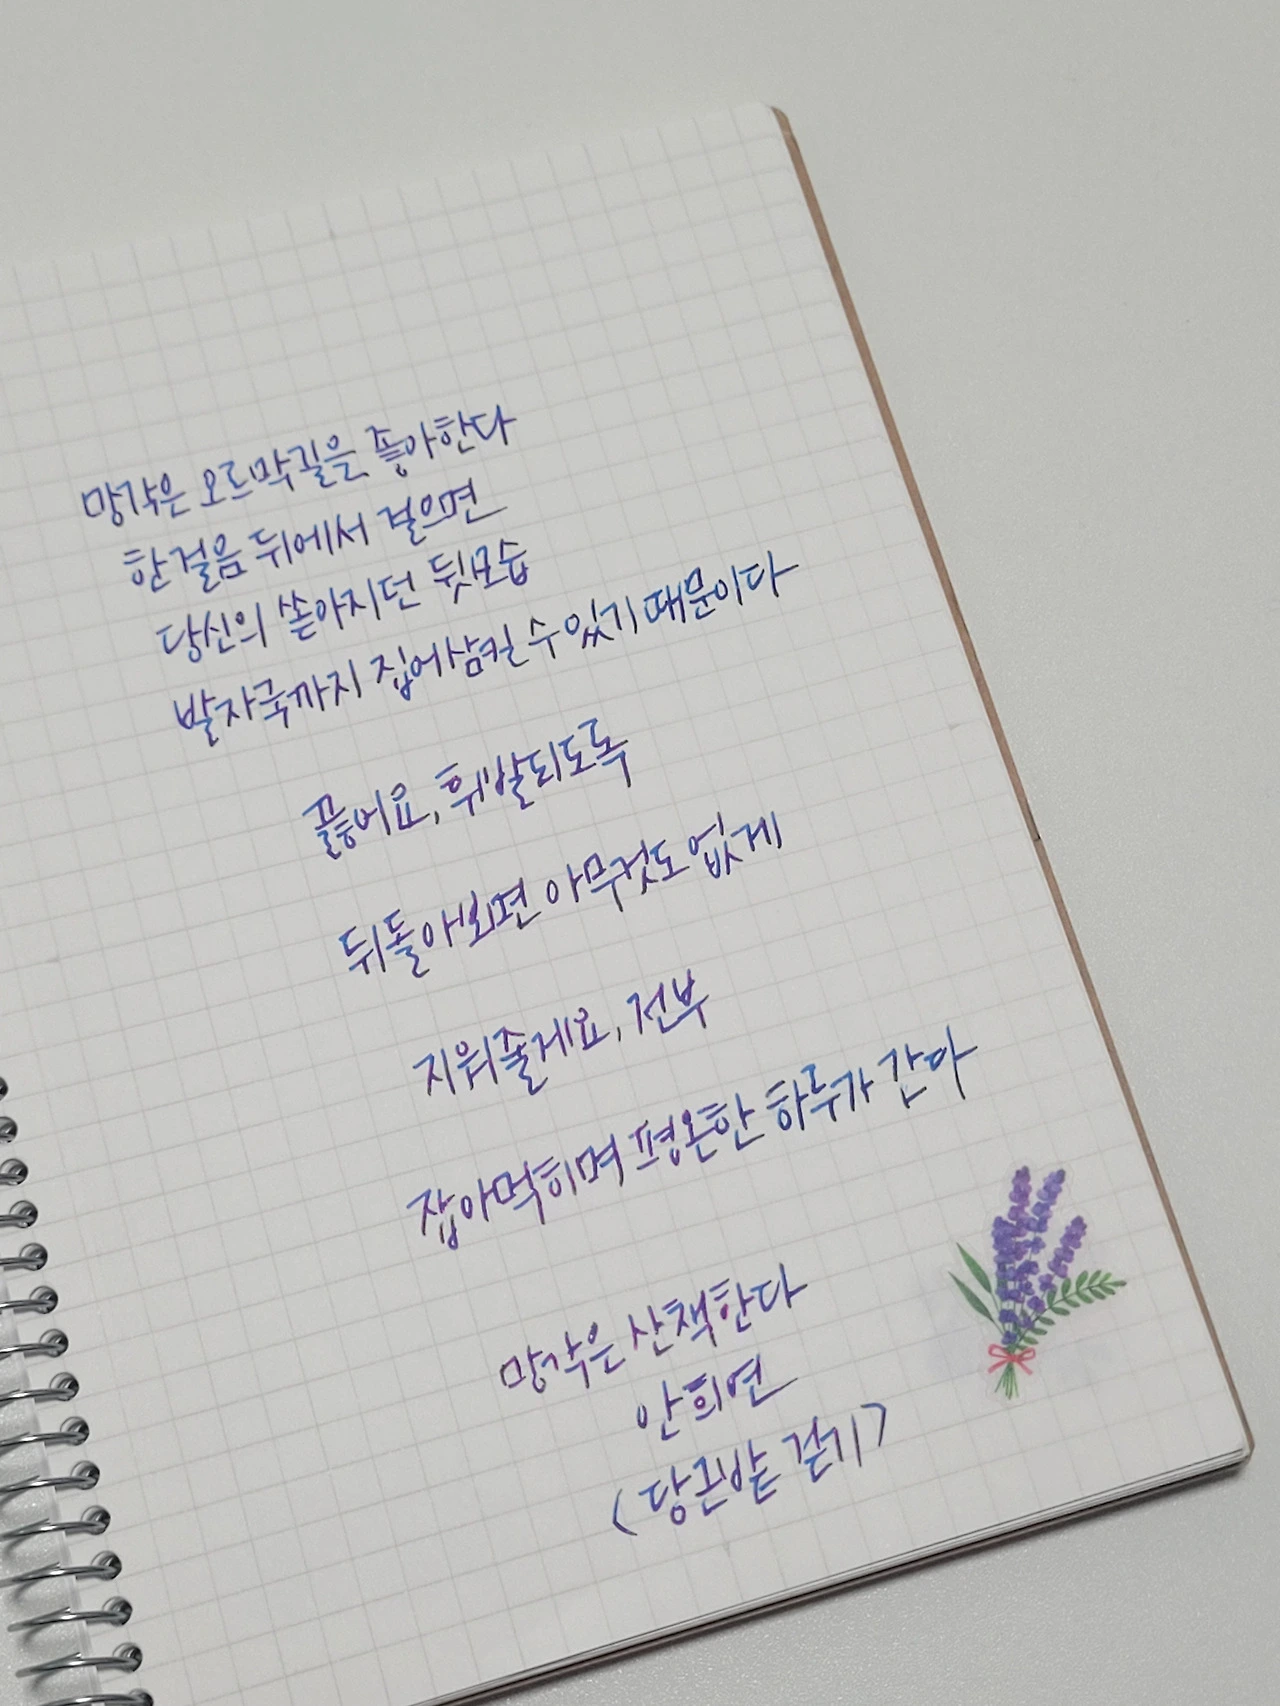 망각은 오르막길을 좋아한다
한 걸음 뒤에서 걸으면
당신의 쏟아지던 뒷모습
발자국까지 집어삼킬 수 있기 때문이다
끓어요, 휘발되도록
뒤돌아보면 아무것도 없게
지워줄게요, 전부
잡아먹히며 평온한 하루가 간다
망각은 산책한다
안희연
<당근밭 걷기>